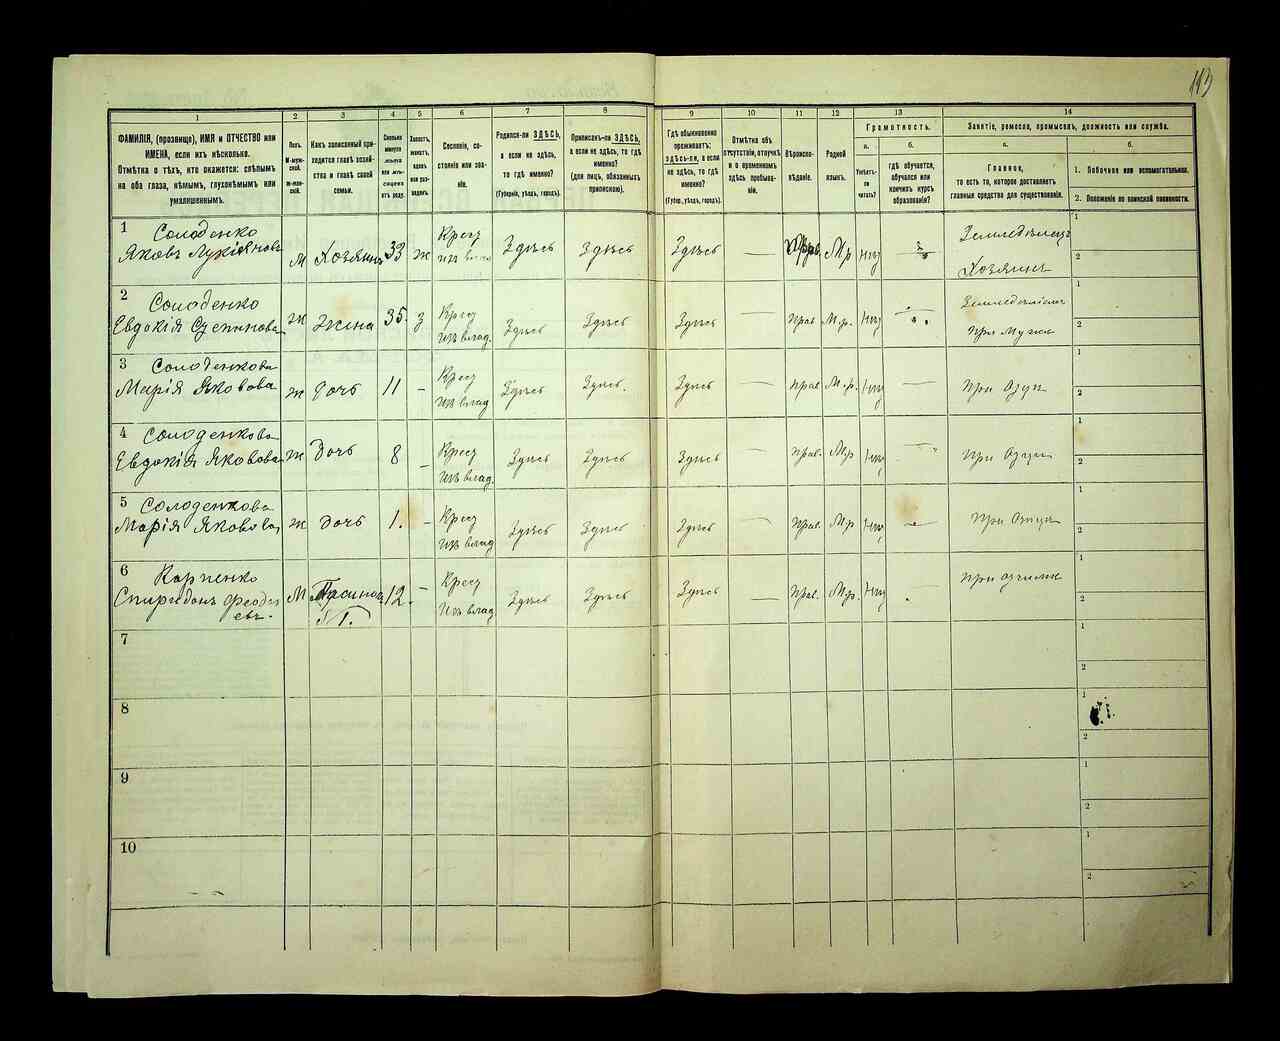 113
1
2
3
4
5
6
7
8
9
10
11
12
13
14
ФАМИЛІЯ, (прозвище), ИМЯ и ОТЧЕСТВО или
ИМЕНА, если ихъ нѣсколько.
Отмѣтка о тѣхъ, кто окажется: слѣпымъ
на оба глаза, нѣмымъ, глухонѣмымъ или
умалишеннымъ.
Полъ.
М-муж-
ской.
ж-жен-
скій.
Какъ записанный при-
ходится главѣ хозяй-
ства и главѣ своей
семьи.
Сколько
минуло
лѣтъ
или мѣ-
сяцевъ
отъ роду.
Холостъ,
женатъ,
вдовъ
или раз-
веденъ.
Сословіе, со-
стояніе или зва-
ніе.
Родился-ли ЗДѢСЬ,
а если не здѣсь,
то гдѣ именно?
(Губернія, уѣздъ, городъ).
Приписанъ-ли ЗДѢСЬ,
а если не здѣсь, то гдѣ
именно?
(для лицъ, обязанныхъ
припискою).
Гдѣ обыкновенно
проживаетъ:
здѣсь-ли, а если
не здѣсь, то гдѣ
именно?
(Губер., уѣздъ, городъ).
Отмѣтка объ
отсутствіи, отлучкѣ
и о временномъ
здѣсь пребыва-
ніи.
Вѣроиспо-
вѣданіе.
Родной
языкъ.
Грамотность.
а.
Умѣетъ-
ли
читать?
б.
гдѣ обучается,
обучался или
кончилъ курсъ
образованія?
Занятіе, ремесло, промыселъ, должность или служба.
а.
Главное,
то есть то, которое доставляетъ
главныя средства для существованія.
б.
1. Побочное или вспомогательное.
2. Положеніе по воинской повинности.
1 Солоденко
Яковъ Лукіяновъ М Хозяинъ 33 ж Крест изъ влад Здѣсь Здѣсь Здѣсь — Прав М.р нѣт — Земледѣлецъ
Хозяинъ
1
2
2 Солоденко
Евдокія ж Жена 35. з Крест изъ влад. Здѣсь Здѣсь Здѣсь — Прав М.р. Нѣт При Мужѣ
1
2
3 Солоденкова
Марія Яковова ж Дочь 11 - Крест изъ влад Здѣсь Здѣсь. Здѣсь — Прав. М.р. Нѣт — При Отцѣ
1
2
4 Солоденкова
Евдокія Яковова ж Дочь 8 - Крест изъ влад. Здѣсь Здѣсь Здѣсь — Прав. М.р Нѣт — При Отцѣ
1
2
5 Солоденкова
Марія Яковова ж Дочь 1. - Крест изъ влад Здѣсь Здѣсь Здѣсь — Прав. М.р Нѣт — При Отцѣ
1
2
6 Карпенко
Спиридонъ Феодос
евъ. М 12. - Крест Изъ влад Здѣсь Здѣсь Здѣсь — Прав. М.р. Нѣт
1
2
7
1
2
8
1
2
9
1
2
10
1
2